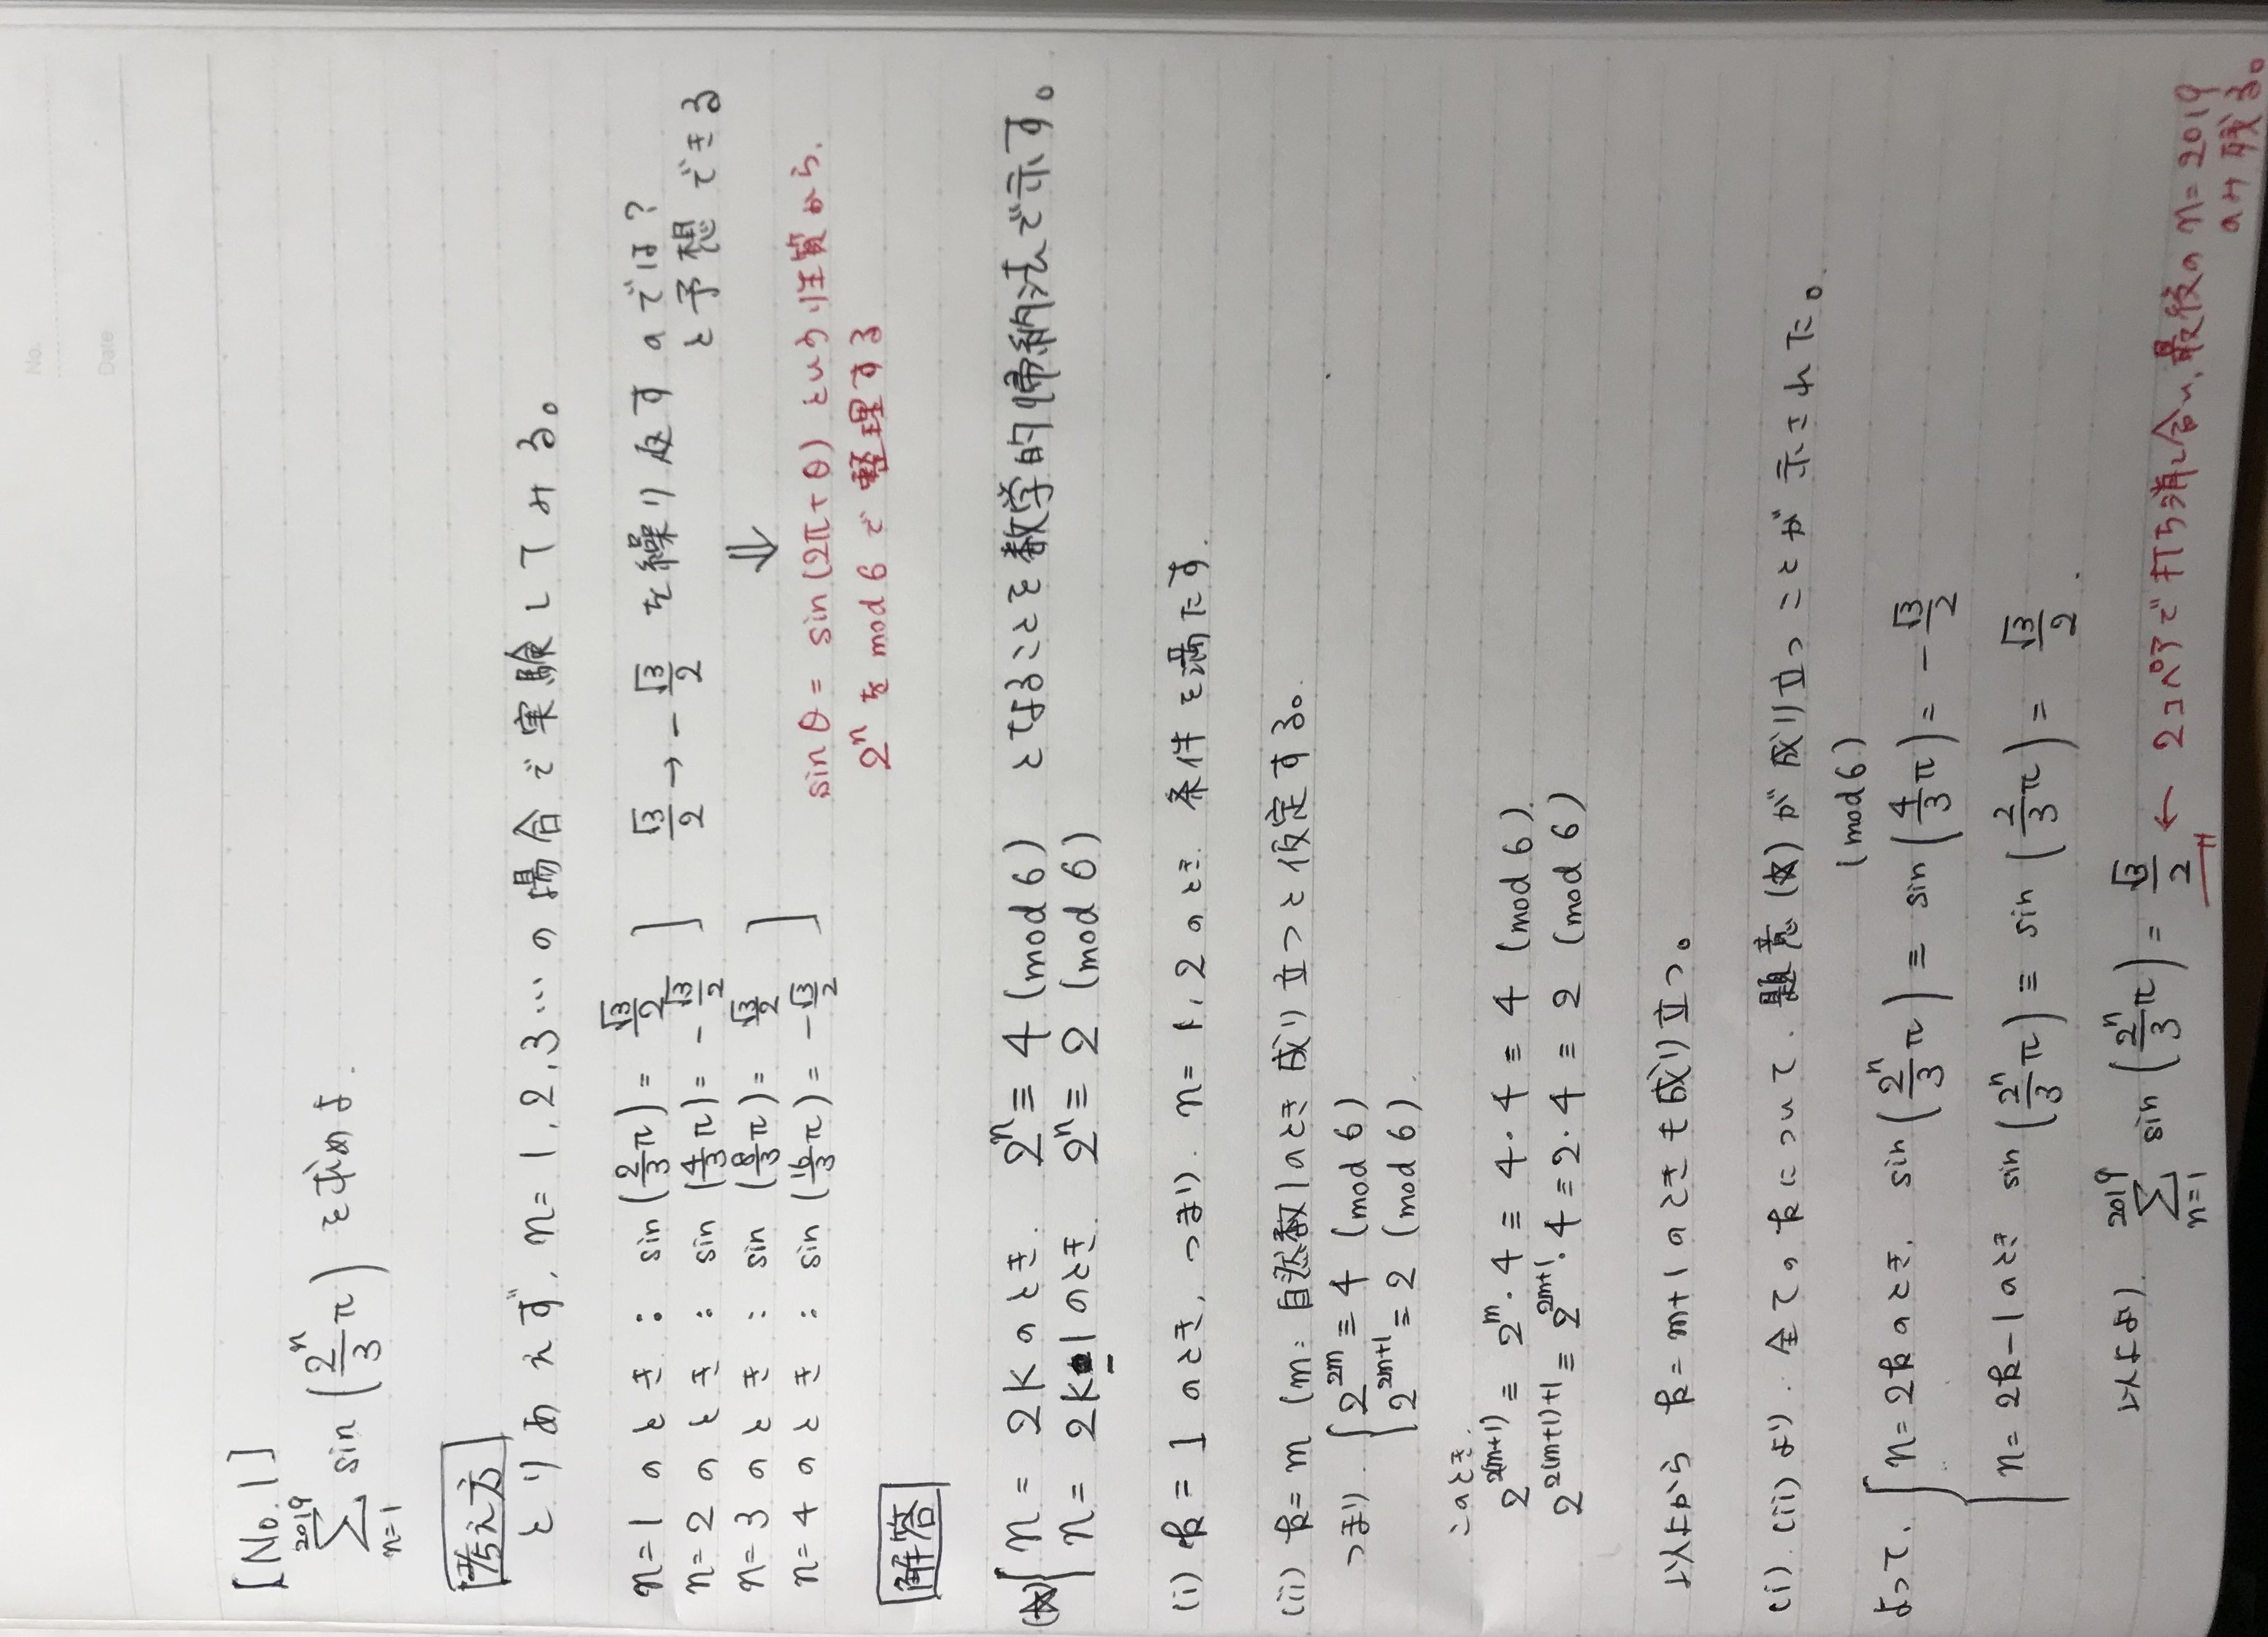 No.
Date
[No.1]
2019
Σ sin (2ⁿ/3 π) を求めよ.
n=1
考え方
とりあえず, n=1,2,3…の場合で実験してみる。
n=1のとき : sin(2/3 π) = √3/2
n=2のとき : sin(4/3 π) = -√3/2
n=3のとき : sin(8/3 π) = √3/2
n=4のとき : sin(16/3 π) = -√3/2
√3/2 → -√3/2 を繰り返すのでは?
と予想できる
⇓
sinθ = sin(2π+θ) という性質から.
2ⁿを mod 6 で整理する
解答
(☆) { n = 2K のとき. 2ⁿ ≡ 4 (mod 6) となることを数学的帰納法で示す。
n = 2K-1 のとき. 2ⁿ ≡ 2 (mod 6)
(i) k = 1 のとき, つまり. n=1,2のとき. 条件を満たす.
(ii) k=m (m:自然数)のとき成り立つと仮定する。
つまり. { 2²ᵐ ≡ 4 (mod 6)
2²ᵐ⁺¹ ≡ 2 (mod 6).
このとき.
2²⁽ᵐ⁺¹⁾ ≡ 2ᵐ・4 ≡ 4・4 ≡ 4 (mod 6).
2²⁽ᵐ⁺¹⁾⁺¹ ≡ 2²ᵐ⁺¹・4 ≡ 2・4 ≡ 2 (mod 6)
以上から k=m+1のときも成り立つ。
(i).(ii)より. 全てのkについて. 題意(☆)が成り立つことが示された。
(mod 6)
よって. { n=2kのとき. sin (2ⁿ/3 π) ≡ sin (4/3 π) = -√3/2
n=2k-1のとき sin (2ⁿ/3 π) ≡ sin (2/3 π) = √3/2 .
2019
以上より Σ sin (2ⁿ/3 π) = √3/2 ← 2コペアで打ち消し合い, 最後の n=2019
n=1
のみ残る。